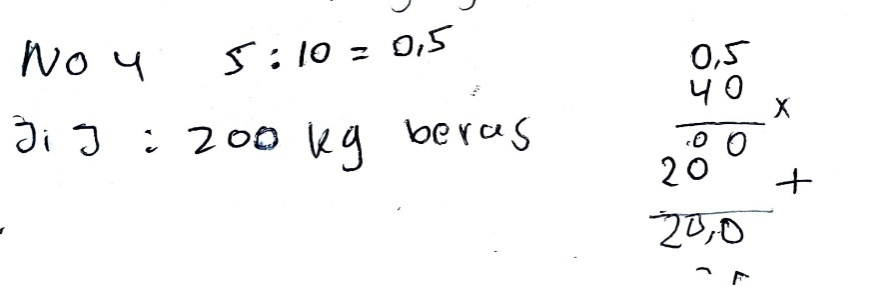 No 4 5 : 10 = 0,5
Jij : 200 kg beras
0,5
40 x
00
200 +
20,0